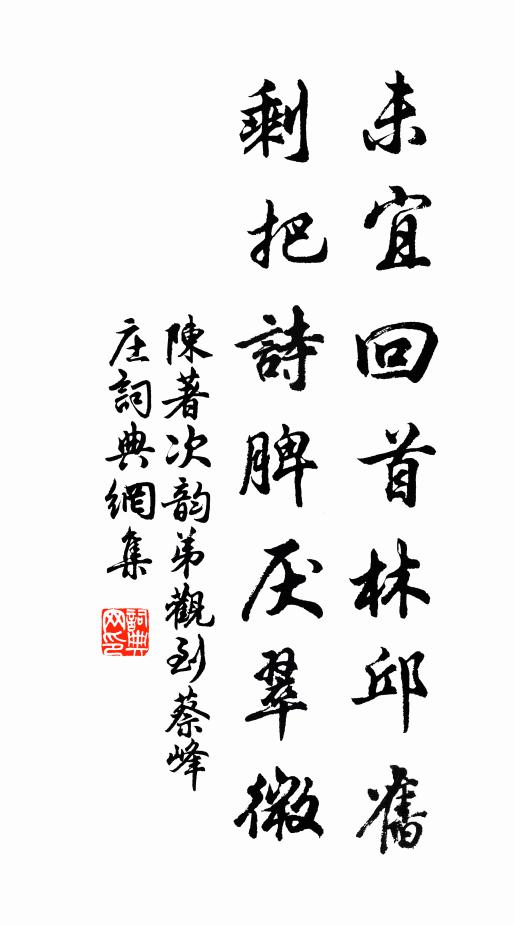 未宜回首林邱舊
剩把詩脾厌翠微
陳著次韵弟觀到蔡峰
庄詞典網集
詞典網印